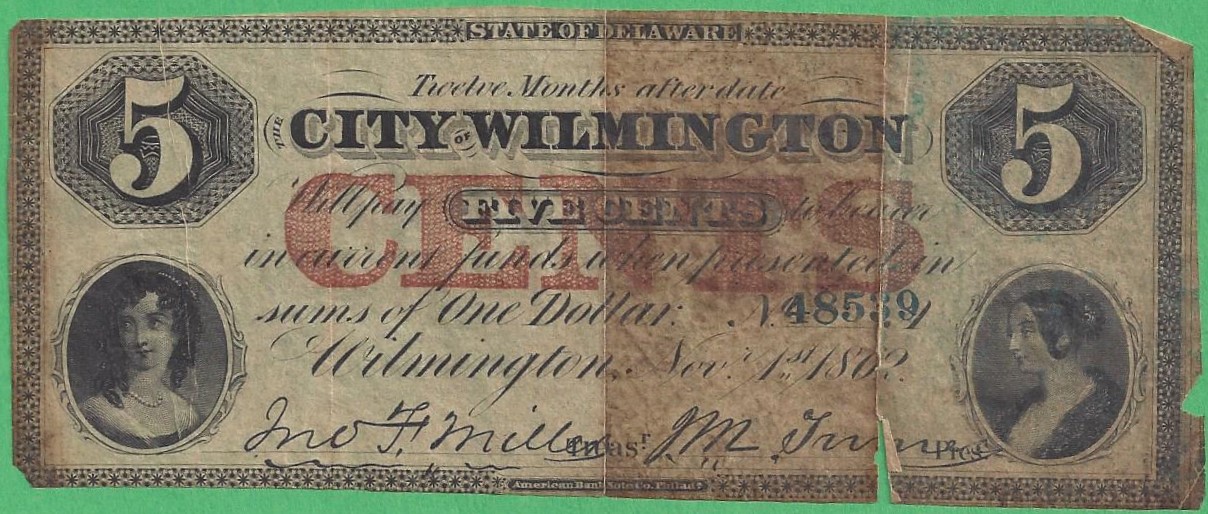 STATE OF DELAWARE
5 5
Twelve Months after date
THE CITY OF WILMINGTON
CENTS
Will pay FIVE CENTS to bearer
in current funds when presented in
sums of One Dollar. No. 48539
Wilmington, Novr. 1st. 1862.
Jno F. Miller Treasr. Pres.
American Bank Note Co. Philada.